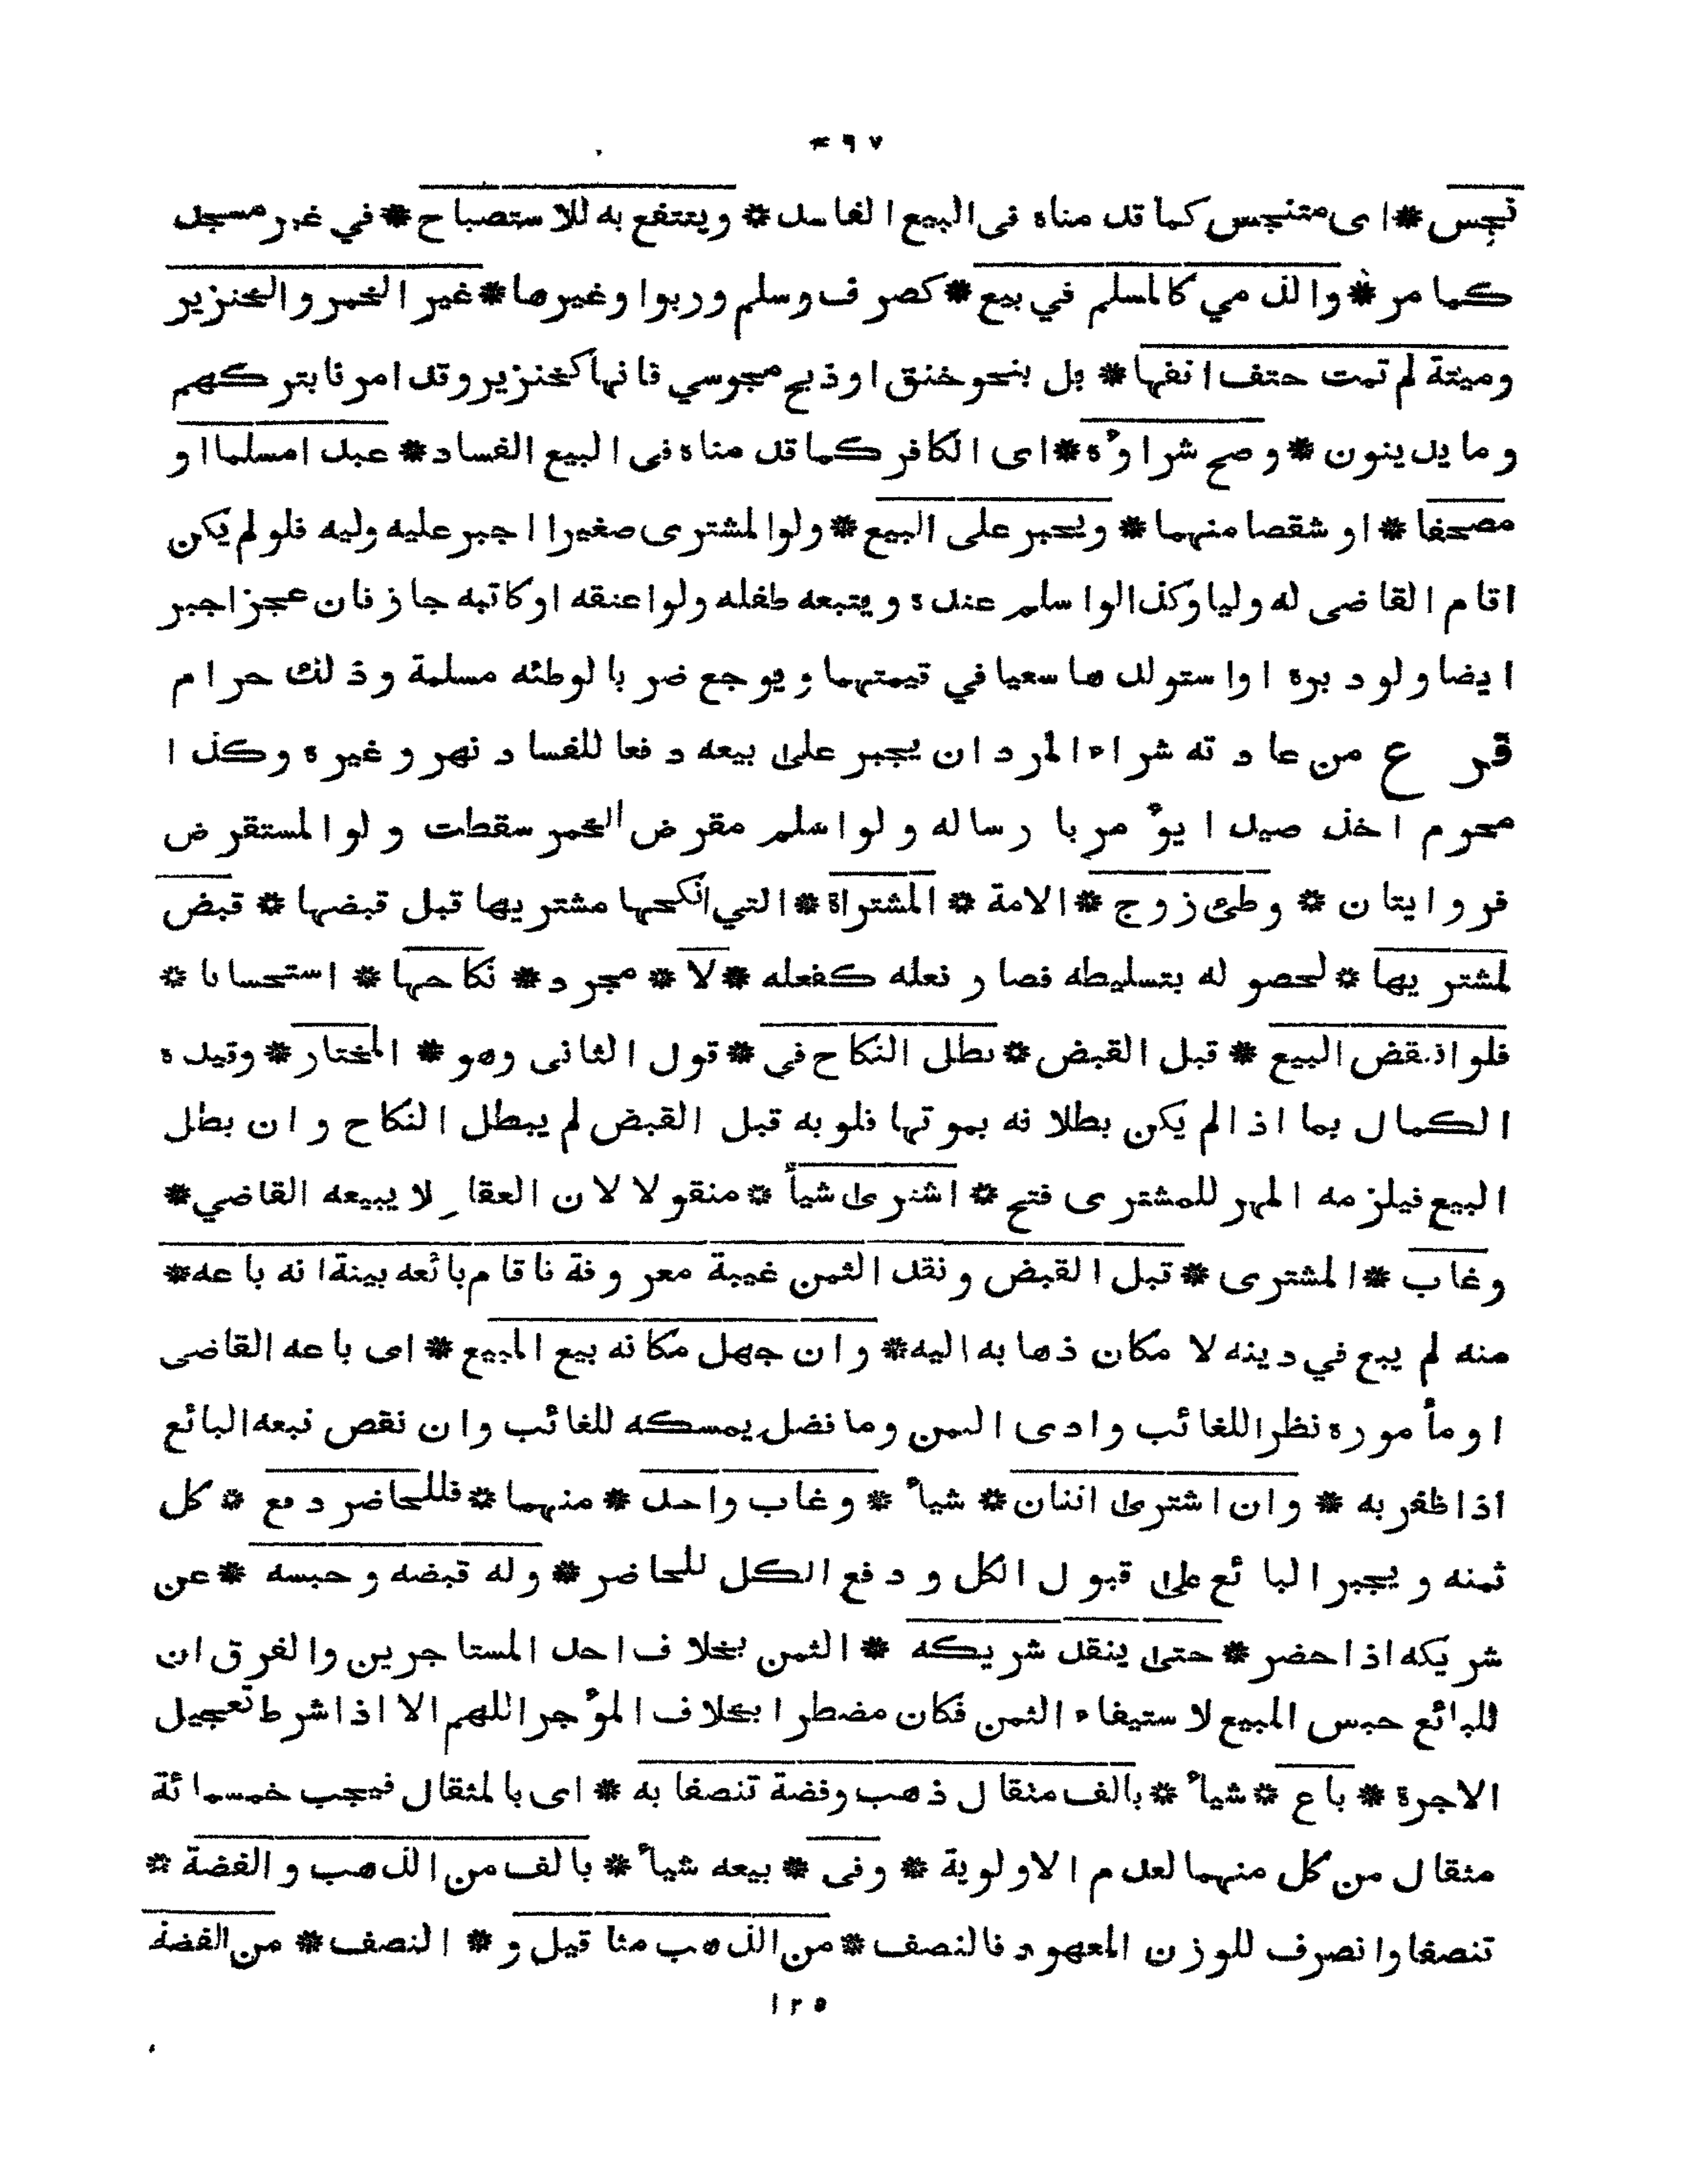 ۴۹۷
نجس * اى متنجس كما قدمناه فى البيع الفاسد * وينتفع به للاستصباح * في غير مسجد
كما مر * والذمي كالمسلم في بيع * كصرف وسلم وربوا وغيرها * غير الخمر والخنزير
وميتة لم تمت حتف انفها * بل بنحو خنق او ذبح مجوسي فانها كخنزير وقد امرنا بتركهم
وما يدينون * وصح شراؤه * اى الكافر كما قدمناه فى البيع الفساد * عبدا مسلما او
مصحفا * او شقصا منهما * ويجبر على البيع * ولو المشترى صغيرا اجبر عليه وليه فلو لم يكن
اقام القاضى له وليا وكذا لو اسلم عنده ويتبعه طفله ولو اعتقه او كاتبه جاز فان عجز اجبر
ايضا ولو دبره او استولدها سعيا في قيمتهما ويوجع ضربا لوطئه مسلمة وذلك حرام
فرع من عادته شراء المرد ان يجبر على بيعه دفعا للفساد نهر وغيره وكذا
محرم اخذ صيدا يؤمر بارساله ولو اسلم مقرض الخمر سقطت ولو المستقرض
فروايتان * وطئ زوج * الامة * المشتراة * التي انكحها مشتريها قبل قبضها * قبض
لمشتريها * لحصوله بتسليطه فصار فعله كفعله * لا * مجرد * نكاحها * استحسانا *
فلو انتقض البيع * قبل القبض * بطل النكاح في * قول الثانى وهو * المختار * وقيده
الكمال بما اذا لم يكن بطلانه بموتها فلو به قبل القبض لم يبطل النكاح وان بطل
البيع فيلزمه المهر للمشترى فتح * اشترى شيأ * منقولا لان العقار لا يبيعه القاضي *
وغاب * المشترى * قبل القبض ونقد الثمن غيبة معروفة فاقام بائعه بينة انه باعه *
منه لم يبع في دينه لا مكان ذهابه اليه * وان جهل مكانه بيع المبيع * اى باعه القاضى
او مأموره نظرا للغائب وادى الثمن وما فضل يمسكه للغائب وان نقص تبعه البائع
اذا ظفر به * وان اشترى اثنان * شيأ * وغاب واحد * منهما * فللحاضر دفع * كل
ثمنه ويجبر البائع على قبول الكل ودفع الكل للحاضر * وله قبضه وحبسه * عن
شريكه اذا حضر * حتى ينقد شريكه * الثمن بخلاف احد المستاجرين والفرق ان
للبائع حبس المبيع لاستيفاء الثمن فكان مضطرا بخلاف المؤجر اللهم الا اذا شرط تعجيل
الاجرة * باع * شيأ * بالف مثقال ذهب وفضة تنصفا به * اى بالمثقال فيجب خمسمائة
مثقال من كل منهما لعدم الاولوية * وفى * بيعه شيأ * بالف من الذهب والفضة *
تنصفا وانصرف للوزن المعهود فالنصف * من الذهب مثاقيل و * النصف * من الفضة
١٢٥